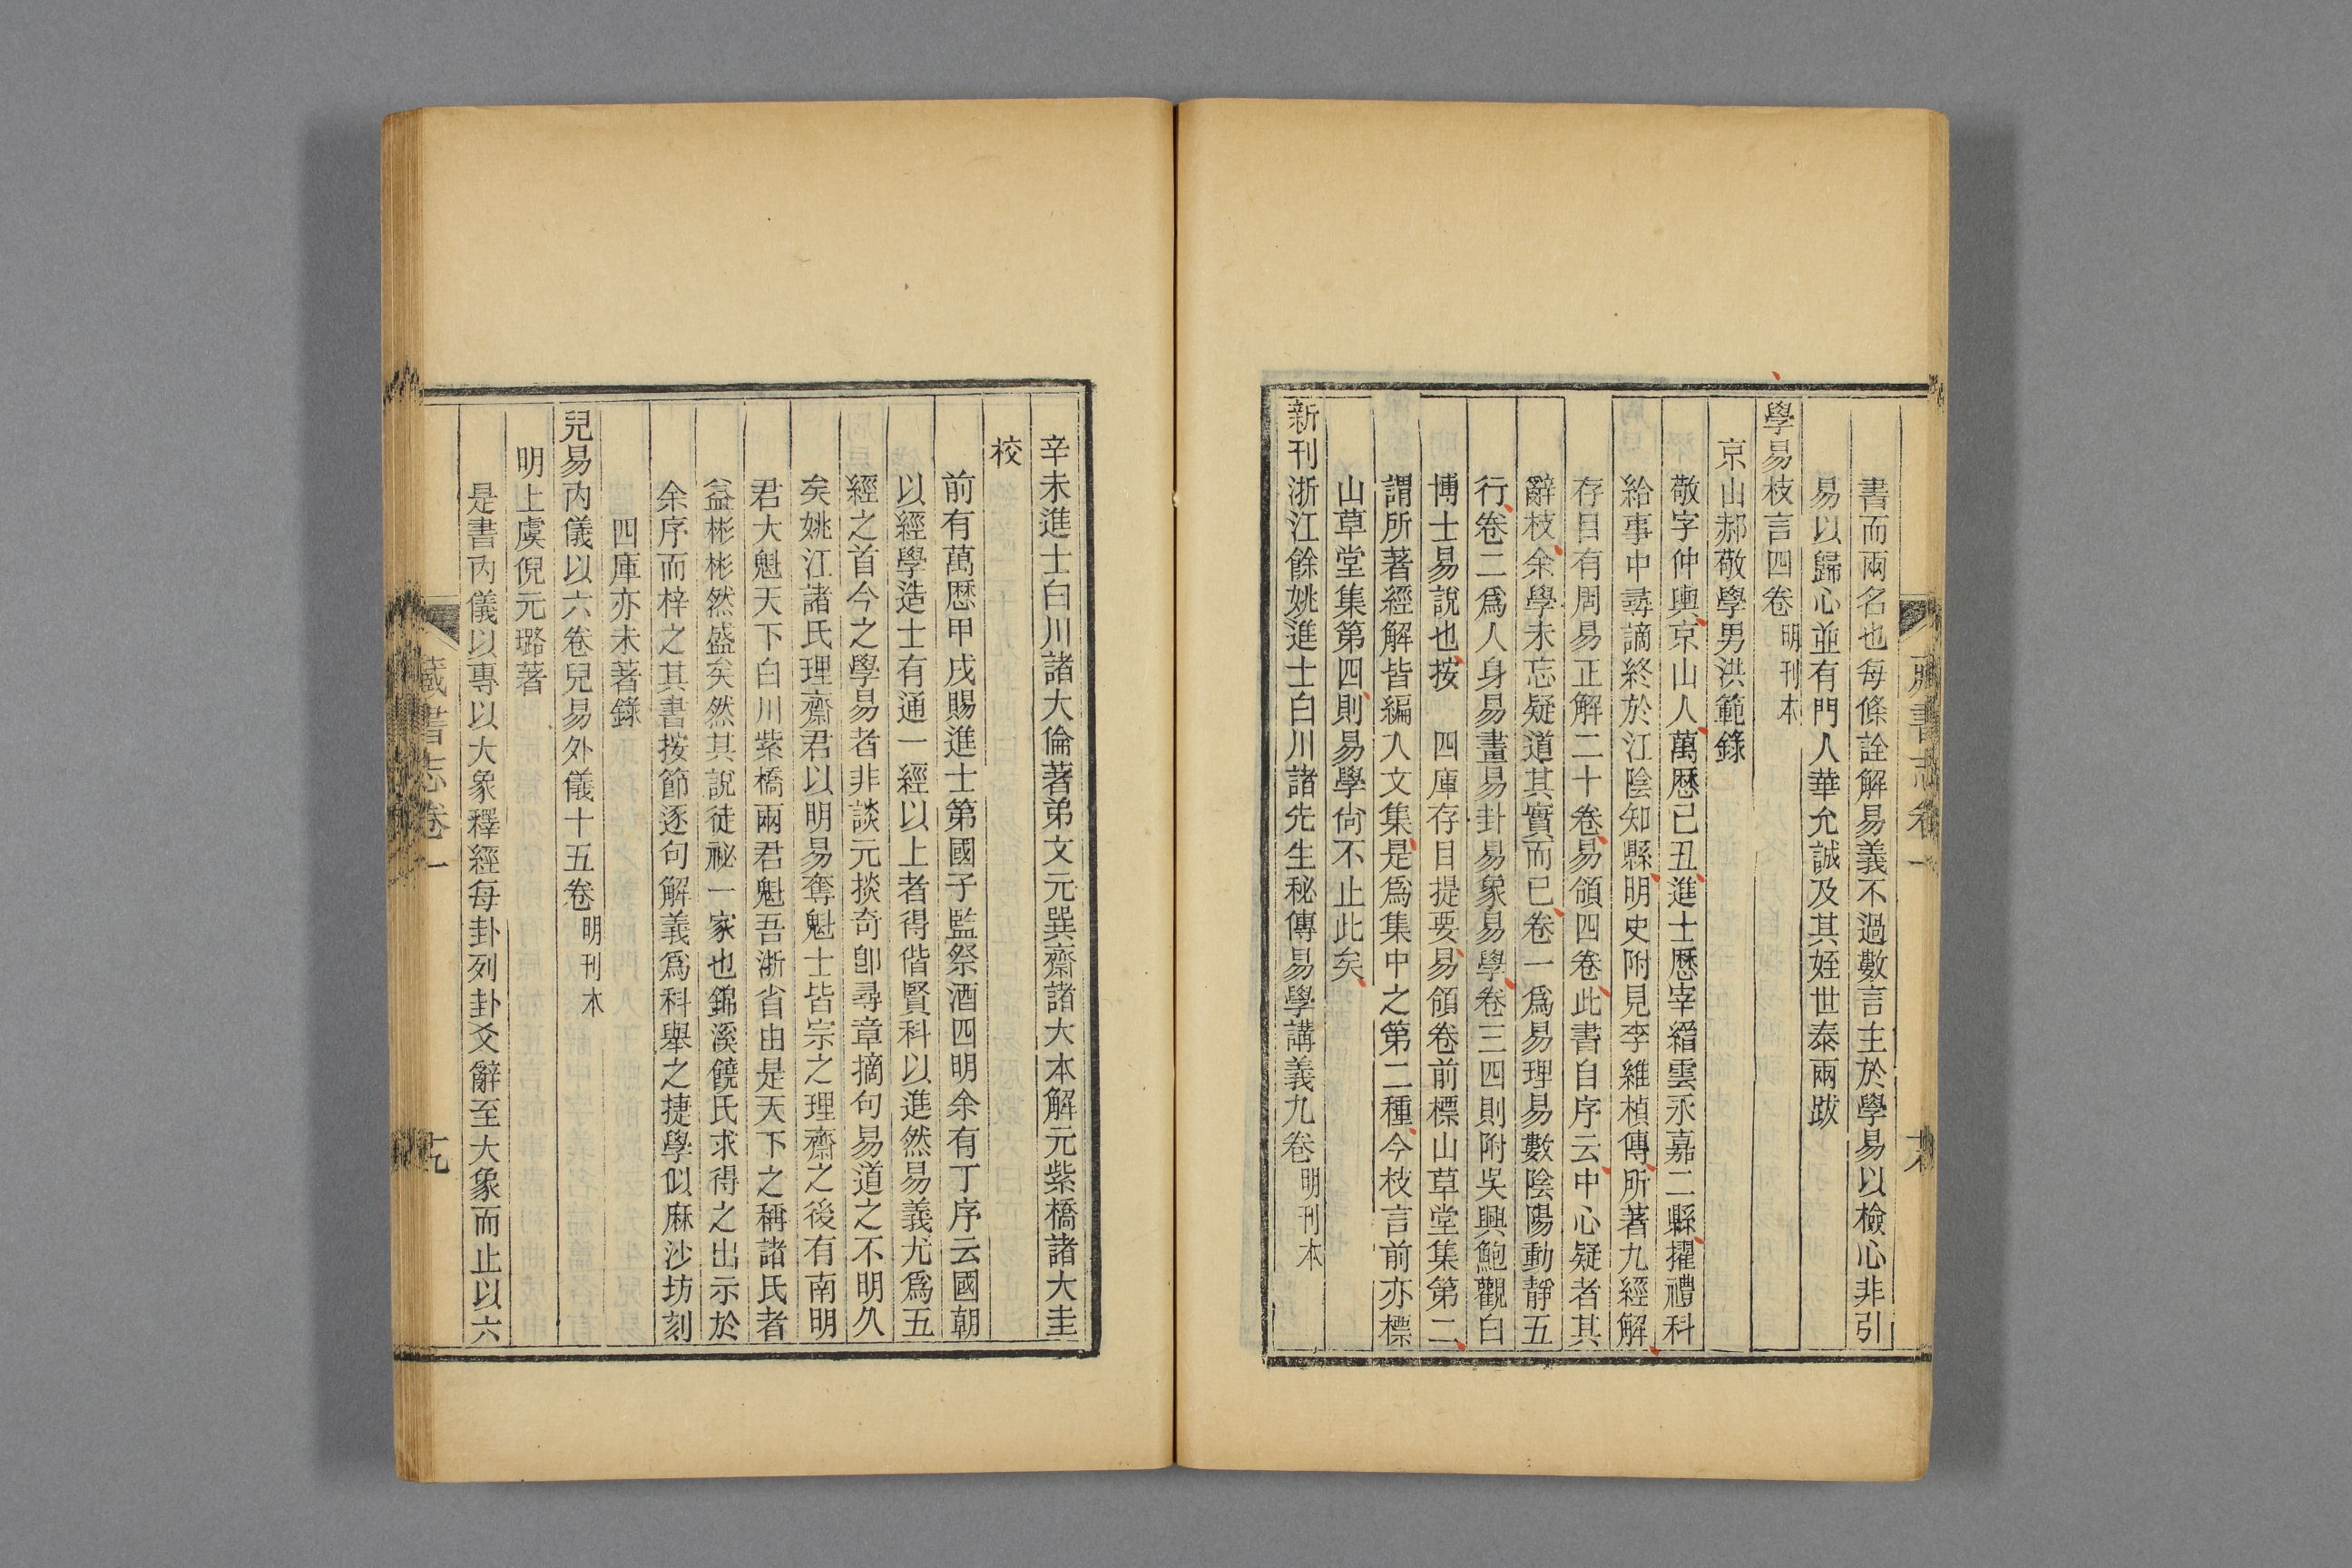 書而兩名也每條詮解易義不過數言主於學易以檢心非引
易以歸心並有門人華允誠及其姪世泰兩跋
學易枝言四卷明刊本
京山郝敬學男洪範錄
敬字仲輿京山人萬歷己丑進士歷宰縉雲永嘉二縣擢禮科
給事中尋謫終於江陰知縣明史附見李維楨傳所著九經解
存目有周易正解二十卷易領四卷此書自序云中心疑者其
辭枝余學未忘疑道其實而已卷一爲易理易數陰陽動靜五
行卷二爲人身易畫易卦易象易學卷三四則附吳興鮑觀白
博士易說也按 四庫存目提要易領卷前標山草堂集第二
謂所著經解皆編入文集是爲集中之第二種今枝言前亦標
山草堂集第四則易學尙不止此矣
新刊浙江餘姚進士白川諸先生秘傳易學講義九卷明刊本
藏書志卷一
辛未進士白川諸大倫著弟文元巽齋諸大本解元紫橋諸大圭
校
前有萬歷甲戌賜進士第國子監祭酒四明余有丁序云國朝
以經學造士有通一經以上者得偕賢科以進然易義尤爲五
經之首今之學易者非談元掞奇卽尋章摘句易道之不明久
矣姚江諸氏理齋君以明易奪魁士皆宗之理齋之後有南明
君大魁天下白川紫橋兩君魁吾浙省由是天下之稱諸氏者
益彬彬然盛矣然其說徒祕一家也錦溪饒氏求得之出示於
余序而梓之其書按節逐句解義爲科舉之捷學似麻沙坊刻
四庫亦未著錄
兒易內儀以六卷兒易外儀十五卷明刊本
明上虞倪元璐著
是書內儀以專以大象釋經每卦列卦爻辭至大象而止以六
藏書志卷一